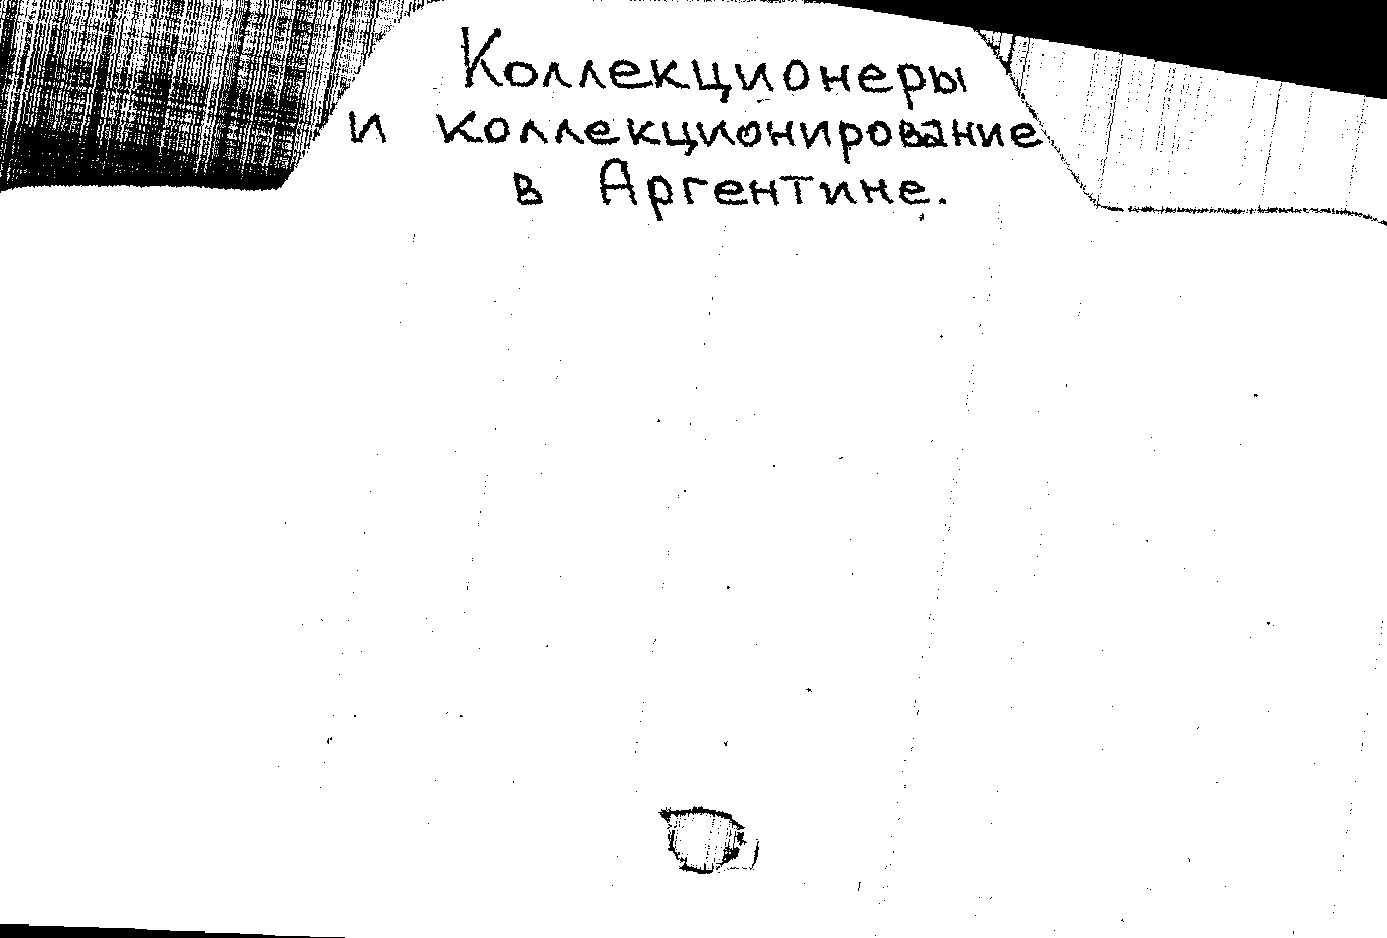 Коллекционеры
и коллекционирование
в Аргентине.